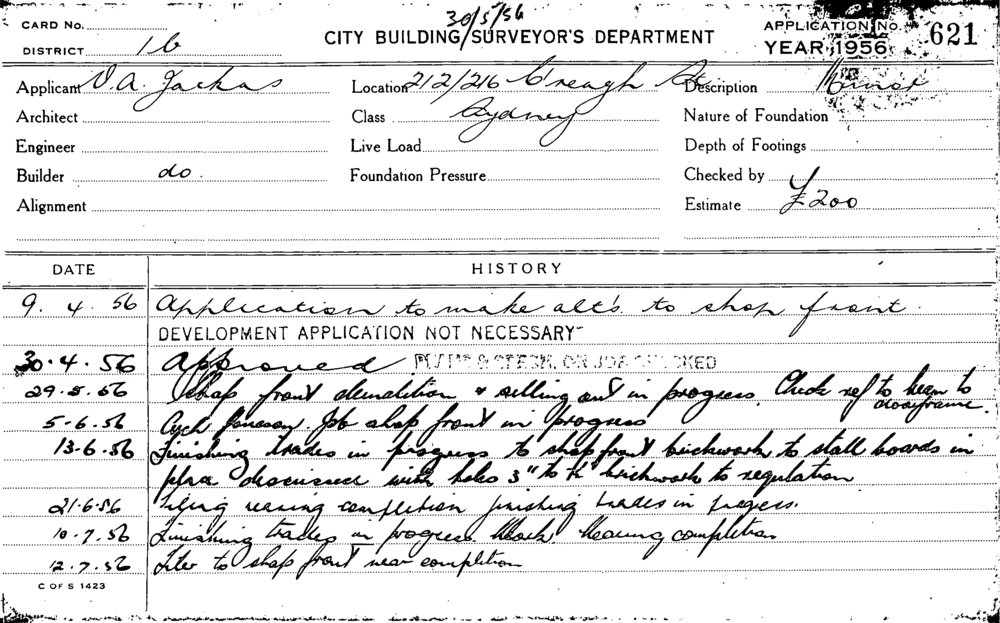 30/5/56
CARD No.
CITY BUILDING SURVEYOR'S DEPARTMENT
APPLICATION No. 621
DISTRICT 16
YEAR 1956
Applicant V.A. Jackas Location 212/216 C'reagh St Description
Architect Class Sydney Nature of Foundation
Engineer Live Load Depth of Footings
Builder do. Foundation Pressure Checked by
Alignment Estimate £200
DATE HISTORY
9. 4. 56 Application to make alt's. to shop front.
DEVELOPMENT APPLICATION NOT NECESSARY
30.4.56 Approved PLANS & SPECN. ON JOB CHECKED
29.5.56 Shop front demolition & in progress. Check ref to to
doorframe.
5-6.56 Job shop front in progress
13-6.56 Finishing trades in progress to shop front brickwork to stall boards in
place discussed with 3" to brickwork to regulation
21.6.56 nearing completion finishing trades in progress.
10.7.56 Finishing trades in progress. Nearing completion
12.7.56 to shop front near completion
C OF S 1423